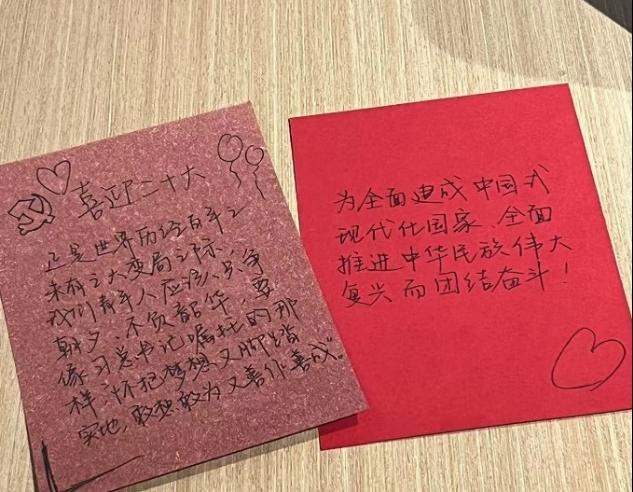 喜迎二十大
正是世界历经百年之
未有之大变局之际,
我们青年人应该只争
朝夕,不负韶华,要
像习总书记嘱托的那
样:怀抱梦想、又脚踏
实地,敢想敢为又善作善成。
为全面建成中国式
现代化国家、全面
推进中华民族伟大
复兴而团结奋斗!